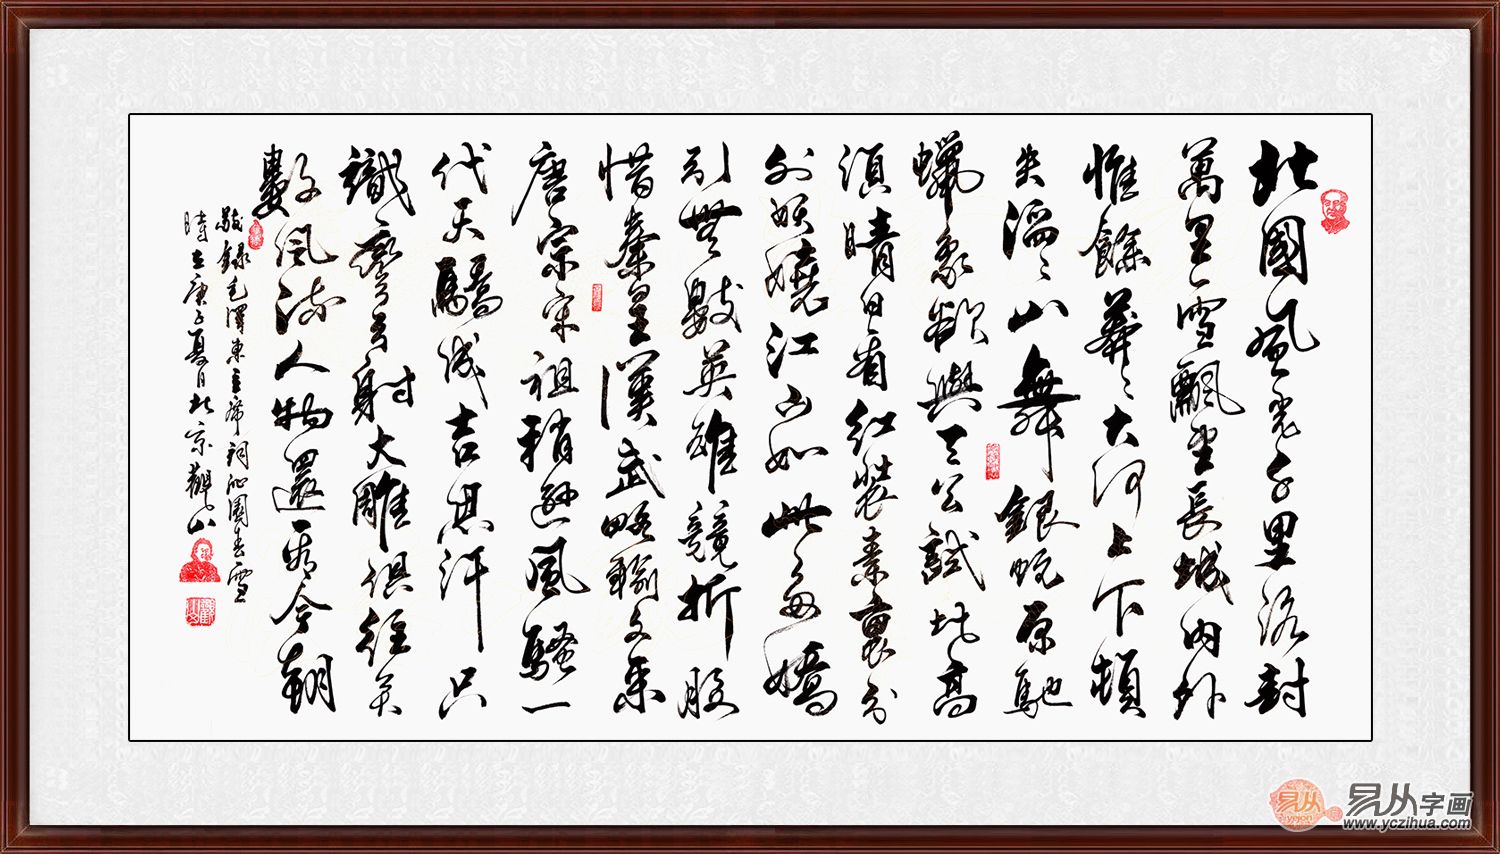 北國風光千里冰封
萬里雪飄望長城內外
惟餘莽〻大河上下頓
失滔〻山舞銀蛇原馳
蠟象欲與天公試比高
須晴日看紅裝素裹分
外妖嬈江山如此多嬌
引無數英雄競折腰
惜秦皇漢武略輸文采
唐宗宋祖稍遜風騷一
代天驕成吉思汗只
識彎弓射大雕俱往矣
數風流人物還看今朝
敬錄毛澤東主席詞沁園春雪
時在庚子夏日北京觀山
易从
易从字画
www.yczihua.com